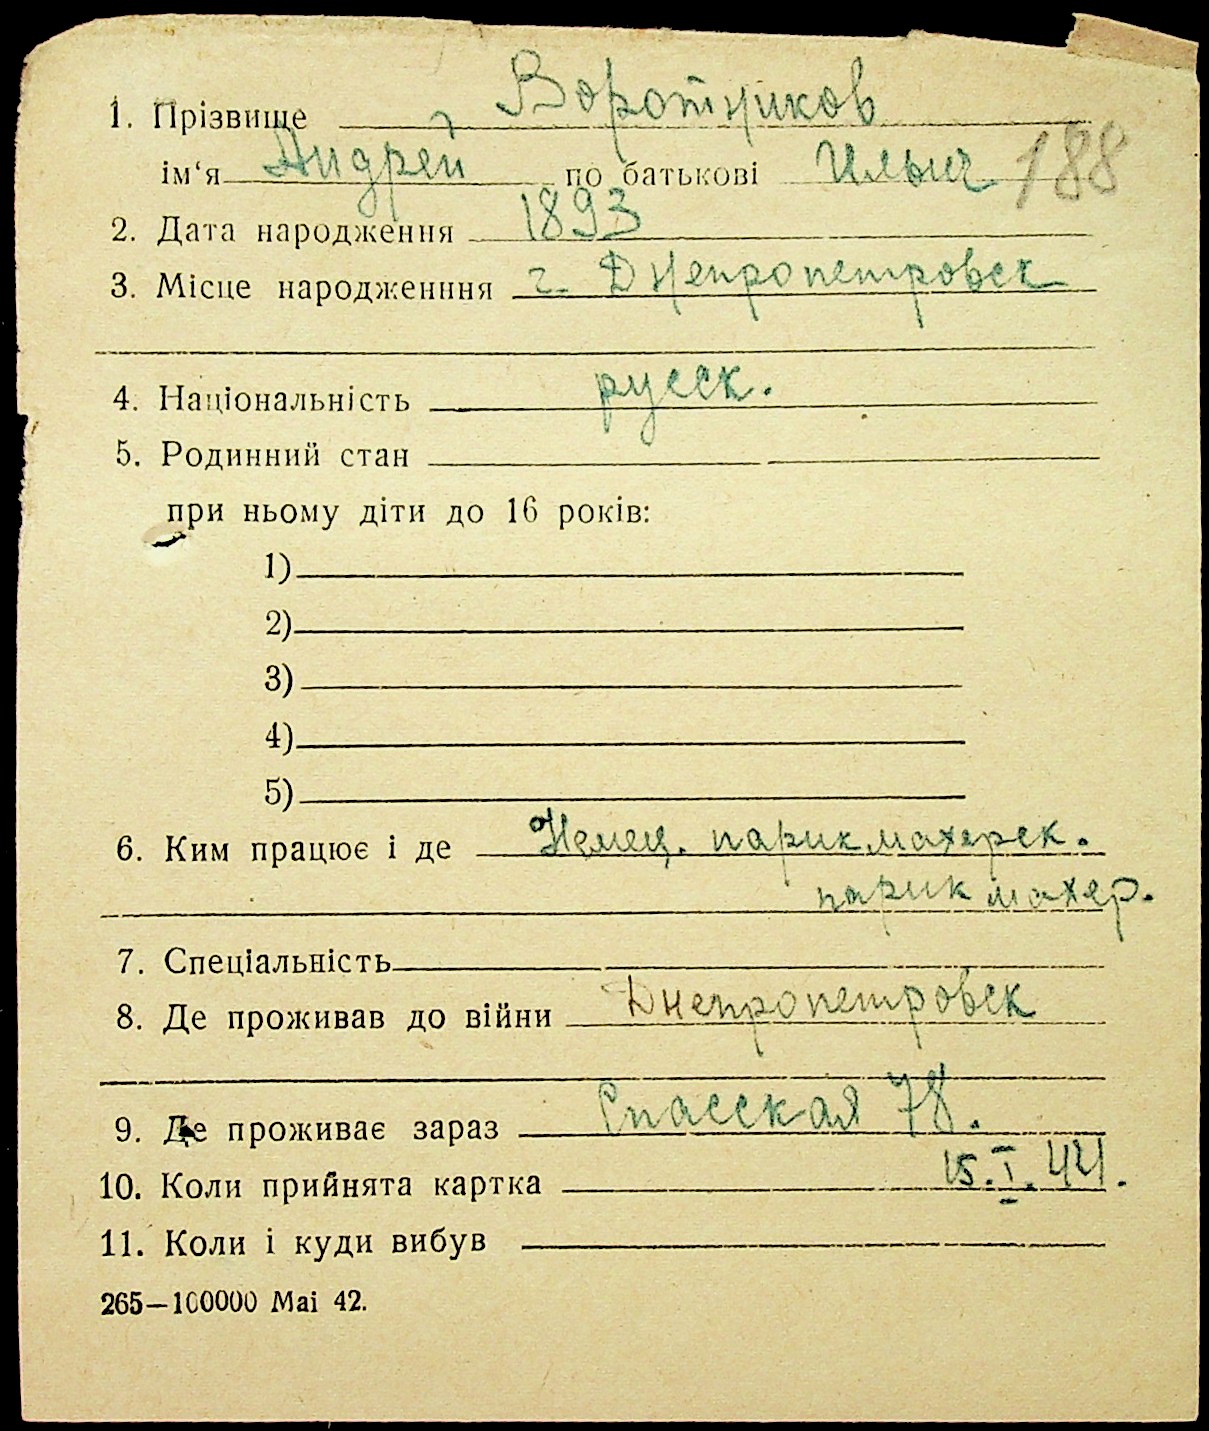 1. Прізвище Воротников
ім‘я Андрей по батькові Ильич 188
2. Дата народження 1893
3. Місце народженння г. Днепропетровск
4. Національність русск.
5. Родинний стан
при ньому діти до 16 років:
1)
2)
3)
4)
5)
6. Ким працює і де Немец. парикмахерск.
парикмахер.
7. Спеціальність
8. Де проживав до війни Днепропетровск
9. Де проживає зараз Спасская 78.
10. Коли прийнята картка 15.I.44.
11. Коли і куди вибув
265—100000 Маі 42.